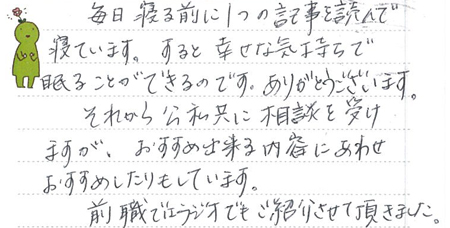 毎日寝る前に1つの記事を読んで
寝ています。すると幸せな気持ちで
眠ることができるのです。ありがとうございます。
それから公私共に相談を受け
ますが、おすすめ出来る内容にあわせ
おすすめしたりもしています。
前職ではラジオでもご紹介させて頂きました。